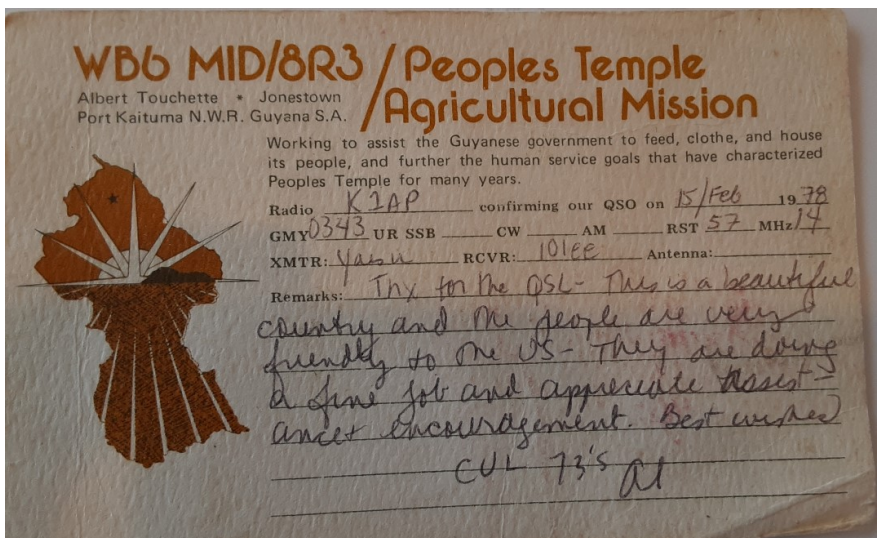 WB6 MID/8R3 / Peoples Temple
Agricultural Mission
Albert Touchette • Jonestown
Port Kaituma N.W.R. Guyana S.A.
Working to assist the Guyanese government to feed, clothe, and house
its people, and further the human service goals that have characterized
Peoples Temple for many years.
Radio K1AP confirming our QSO on 15/Feb 1978
GMY 0343 UR SSB CW AM RST 57 MHz 14
XMTR: Yaesu RCVR: 101ee Antenna:
Remarks: Tnx for the QSL- This is a beautiful
country and the people are very
friendly to the US- They are doing
a fine job and appreciate assist-
ance+ encouragement. Best wishes
CUL 73's Al